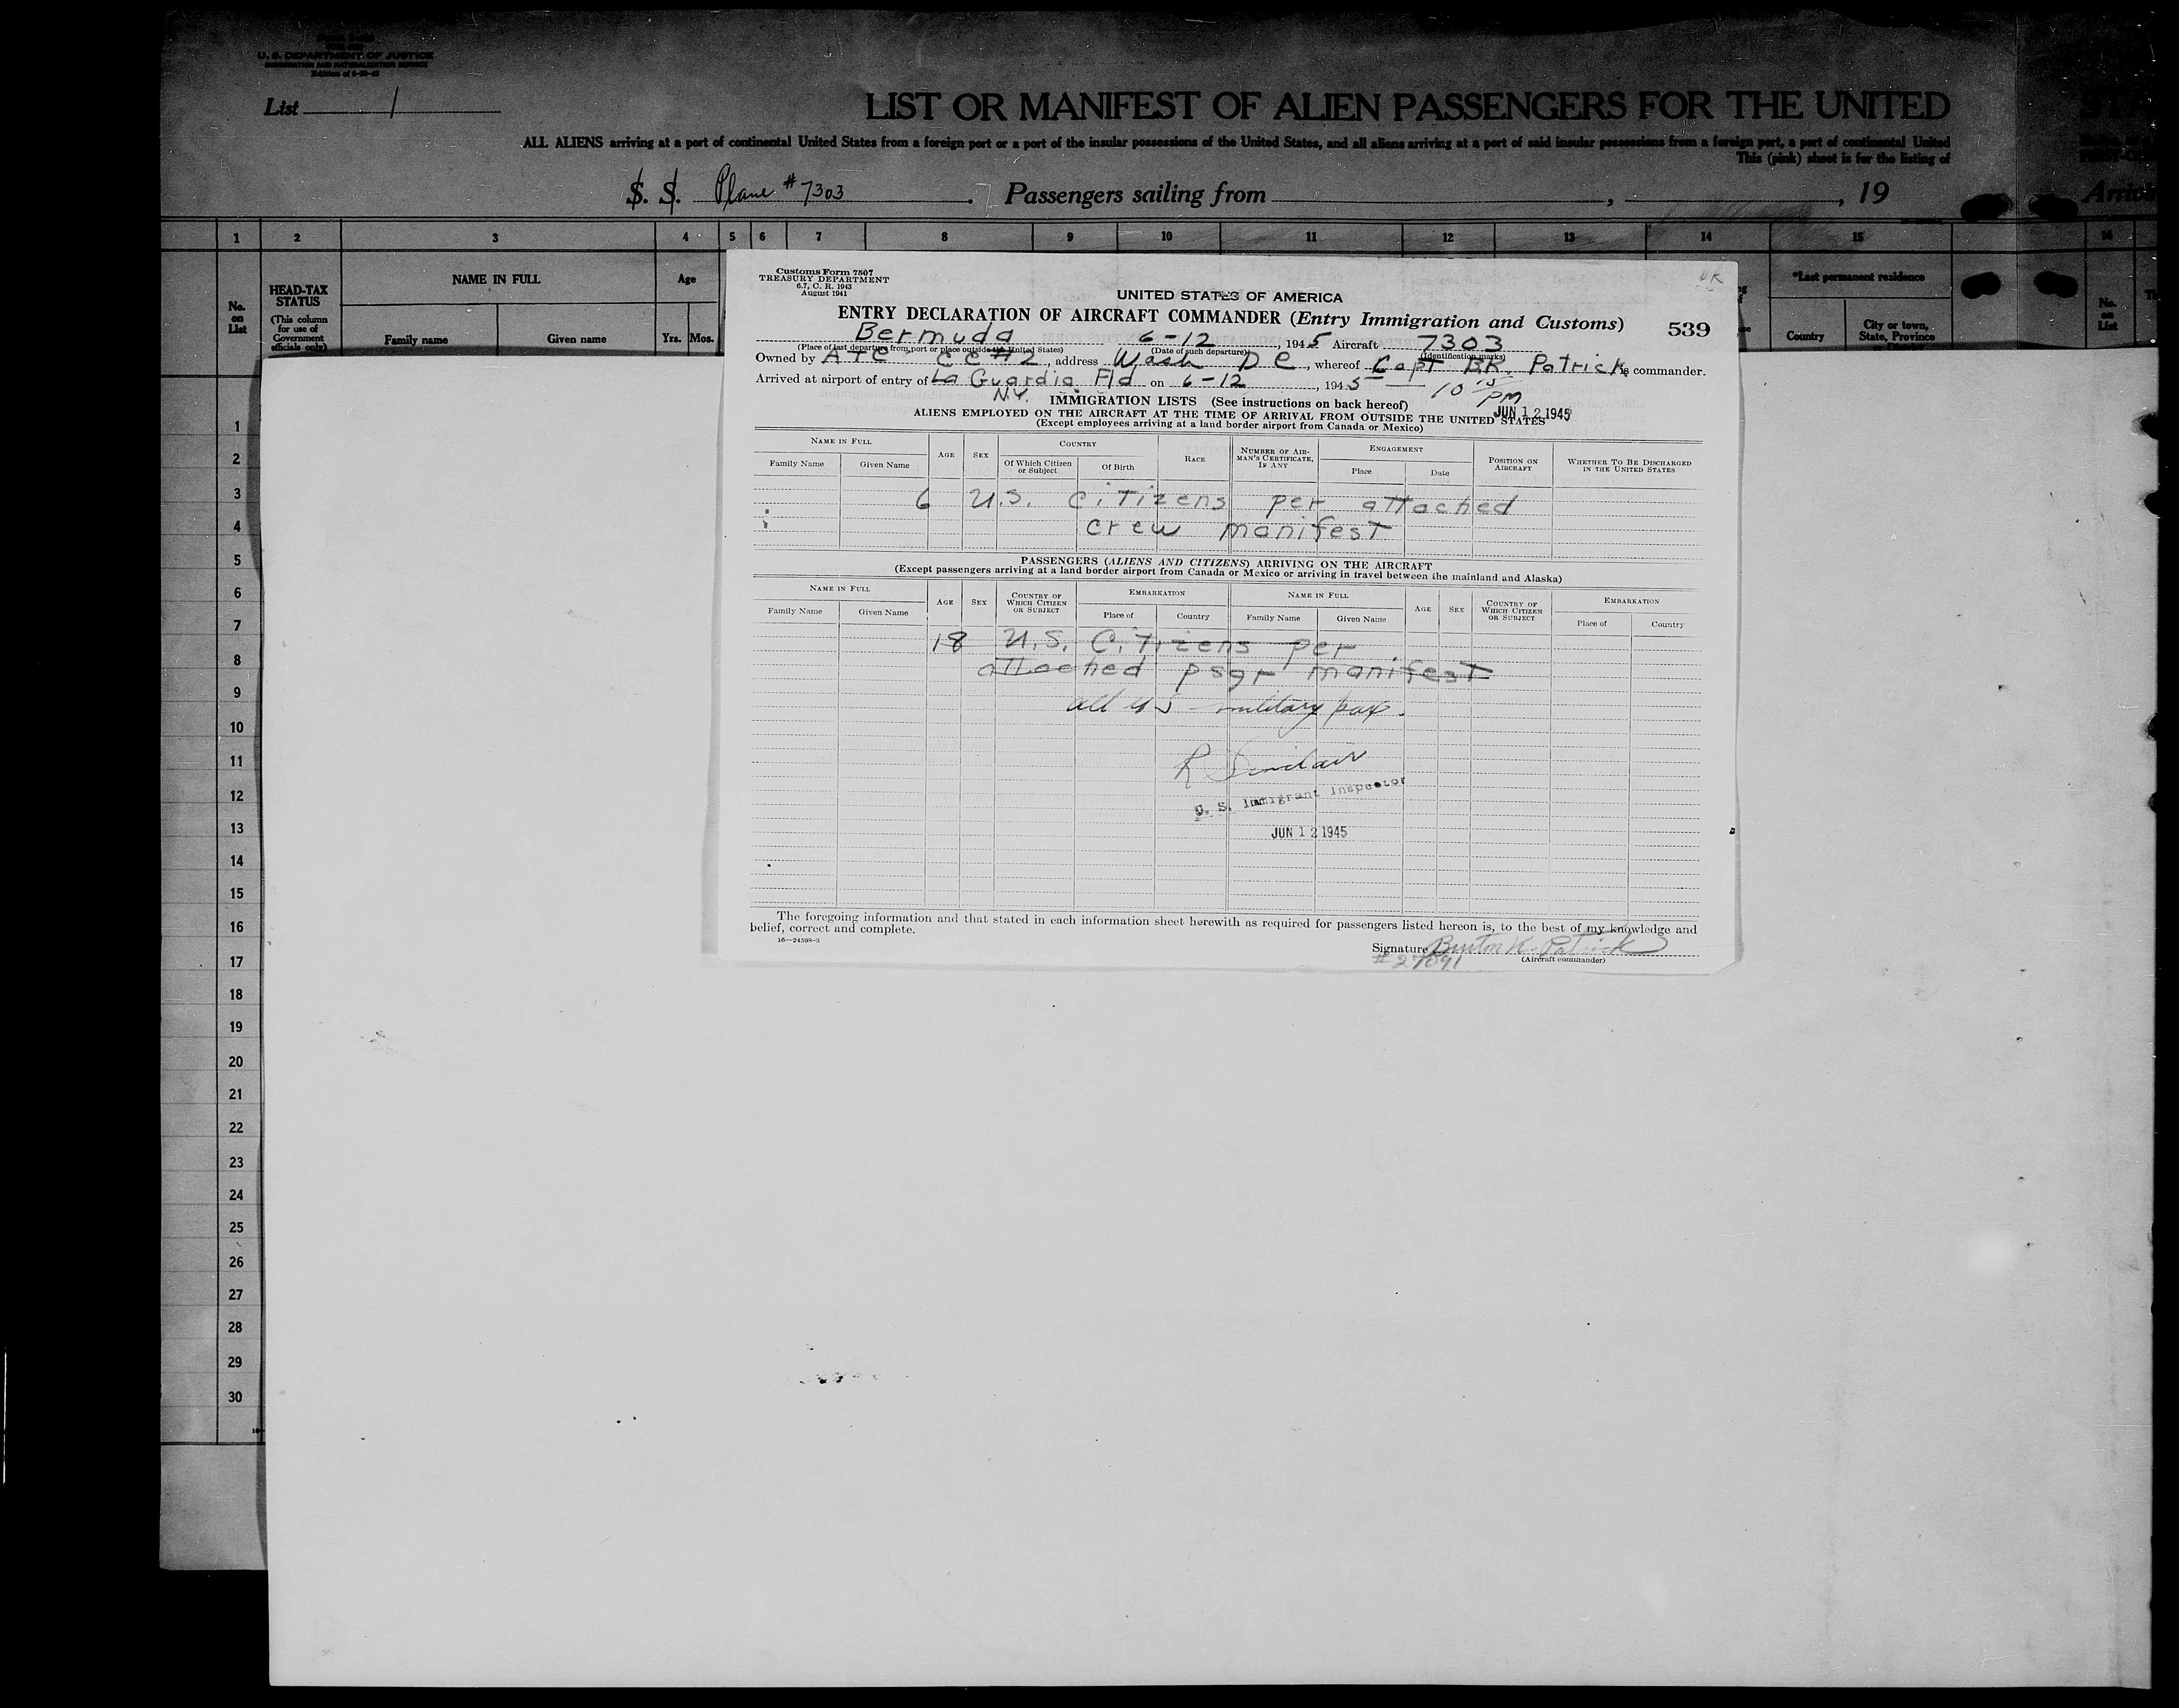 U. S. DEPARTMENT OF JUSTICE
IMMIGRATION AND NATURALIZATION SERVICE
List 1
LIST OR MANIFEST OF ALIEN PASSENGERS FOR THE UNITED
ALL ALIENS arriving at a port of continental United States from a foreign port or a port of the insular possessions of the United States, and all aliens arriving at a port of said insular possessions from a foreign port, a part of continental United
This (pink) sheet is for the listing of
S. S. Plane # 7303. Passengers sailing from , , 19
Arriv
1 2 3 4 5 6 7 8 9 10 11 12 13 14 15 16
No. on List
HEAD-TAX STATUS
(This column for use of Government officials only)
NAME IN FULL
Family name Given name
Age
Yrs. Mos.
*Last permanent residence
Country City or town, State, Province
No. on List
Customs Form 7507
TREASURY DEPARTMENT
6.7, C. R. 1943
August 1941
UK
UNITED STATES OF AMERICA
ENTRY DECLARATION OF AIRCRAFT COMMANDER (Entry Immigration and Customs) 539
Bermuda 6-12, 1945 Aircraft 7303
(Place of last departure from port or place outside the United States) (Date of such departure) (Identification marks)
Owned by ATC CC#2, address Wash D C, whereof Capt B.K. Patrick is commander.
Arrived at airport of entry of La Guardia Fld on 6-12, 1945 — 10 15 PM
N.Y. IMMIGRATION LISTS (See instructions on back hereof)
JUN 12 1945
ALIENS EMPLOYED ON THE AIRCRAFT AT THE TIME OF ARRIVAL FROM OUTSIDE THE UNITED STATES
(Except employees arriving at a land border airport from Canada or Mexico)
NAME IN FULL
Family Name Given Name
AGE SEX
COUNTRY
Of Which Citizen or Subject Of Birth
RACE
NUMBER OF AIRMAN'S CERTIFICATE, IF ANY
ENGAGEMENT
Place Date
POSITION ON AIRCRAFT
WHETHER TO BE DISCHARGED IN THE UNITED STATES
6 U.S. Citizens per attached
crew manifest
PASSENGERS (ALIENS AND CITIZENS) ARRIVING ON THE AIRCRAFT
(Except passengers arriving at a land border airport from Canada or Mexico or arriving in travel between the mainland and Alaska)
NAME IN FULL
Family Name Given Name
AGE SEX
COUNTRY OF WHICH CITIZEN OR SUBJECT
EMBARKATION
Place of Country
NAME IN FULL
Family Name Given Name
AGE SEX
COUNTRY OF WHICH CITIZEN OR SUBJECT
EMBARKATION
Place of Country
18 U.S. Citizens per
attached psgr manifest
all US military pax.
R Sinclair
U. S. Immigrant Inspector
JUN 12 1945
The foregoing information and that stated in each information sheet herewith as required for passengers listed hereon is, to the best of my knowledge and
belief, correct and complete.
16—24598-3
Signature Burton K. Patrick
(Aircraft commander)
# 27091
1
2
3
4
5
6
7
8
9
10
11
12
13
14
15
16
17
18
19
20
21
22
23
24
25
26
27
28
29
30